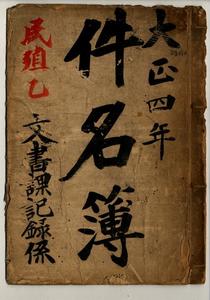 大正四年
件名簿
民殖乙
文書課記録係